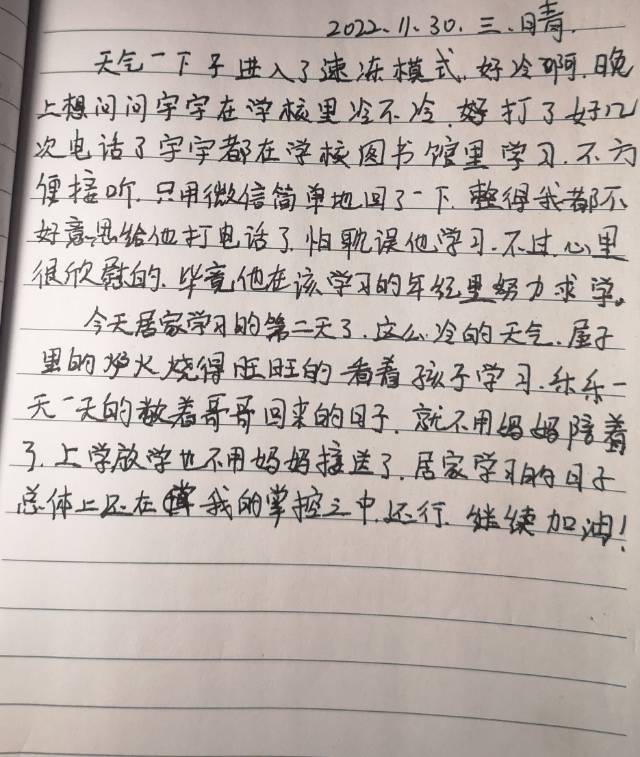 2022.11.30.三.晴.
天气一下子进入了速冻模式.好冷啊.晚
上想问问宇宇在学校里冷不冷.好打了好几
次电话了宇宇都在学校图书馆里学习.不方
便接听.只用微信简单地回了一下.整得我都不
好意思给他打电话了.怕耽误他学习.不过.心里
很欣慰的.毕竟他在该学习的年纪里努力求学。
今天居家学习的第二天了.这么冷的天气.屋子
里的炉火烧得旺旺的看着孩子学习.乐乐一
天一天的数着哥哥回来的日子.就不用妈妈陪着
了.上学放学也不用妈妈接送了.居家学习的日子
总体上还在我的掌控之中.还行.继续加油!